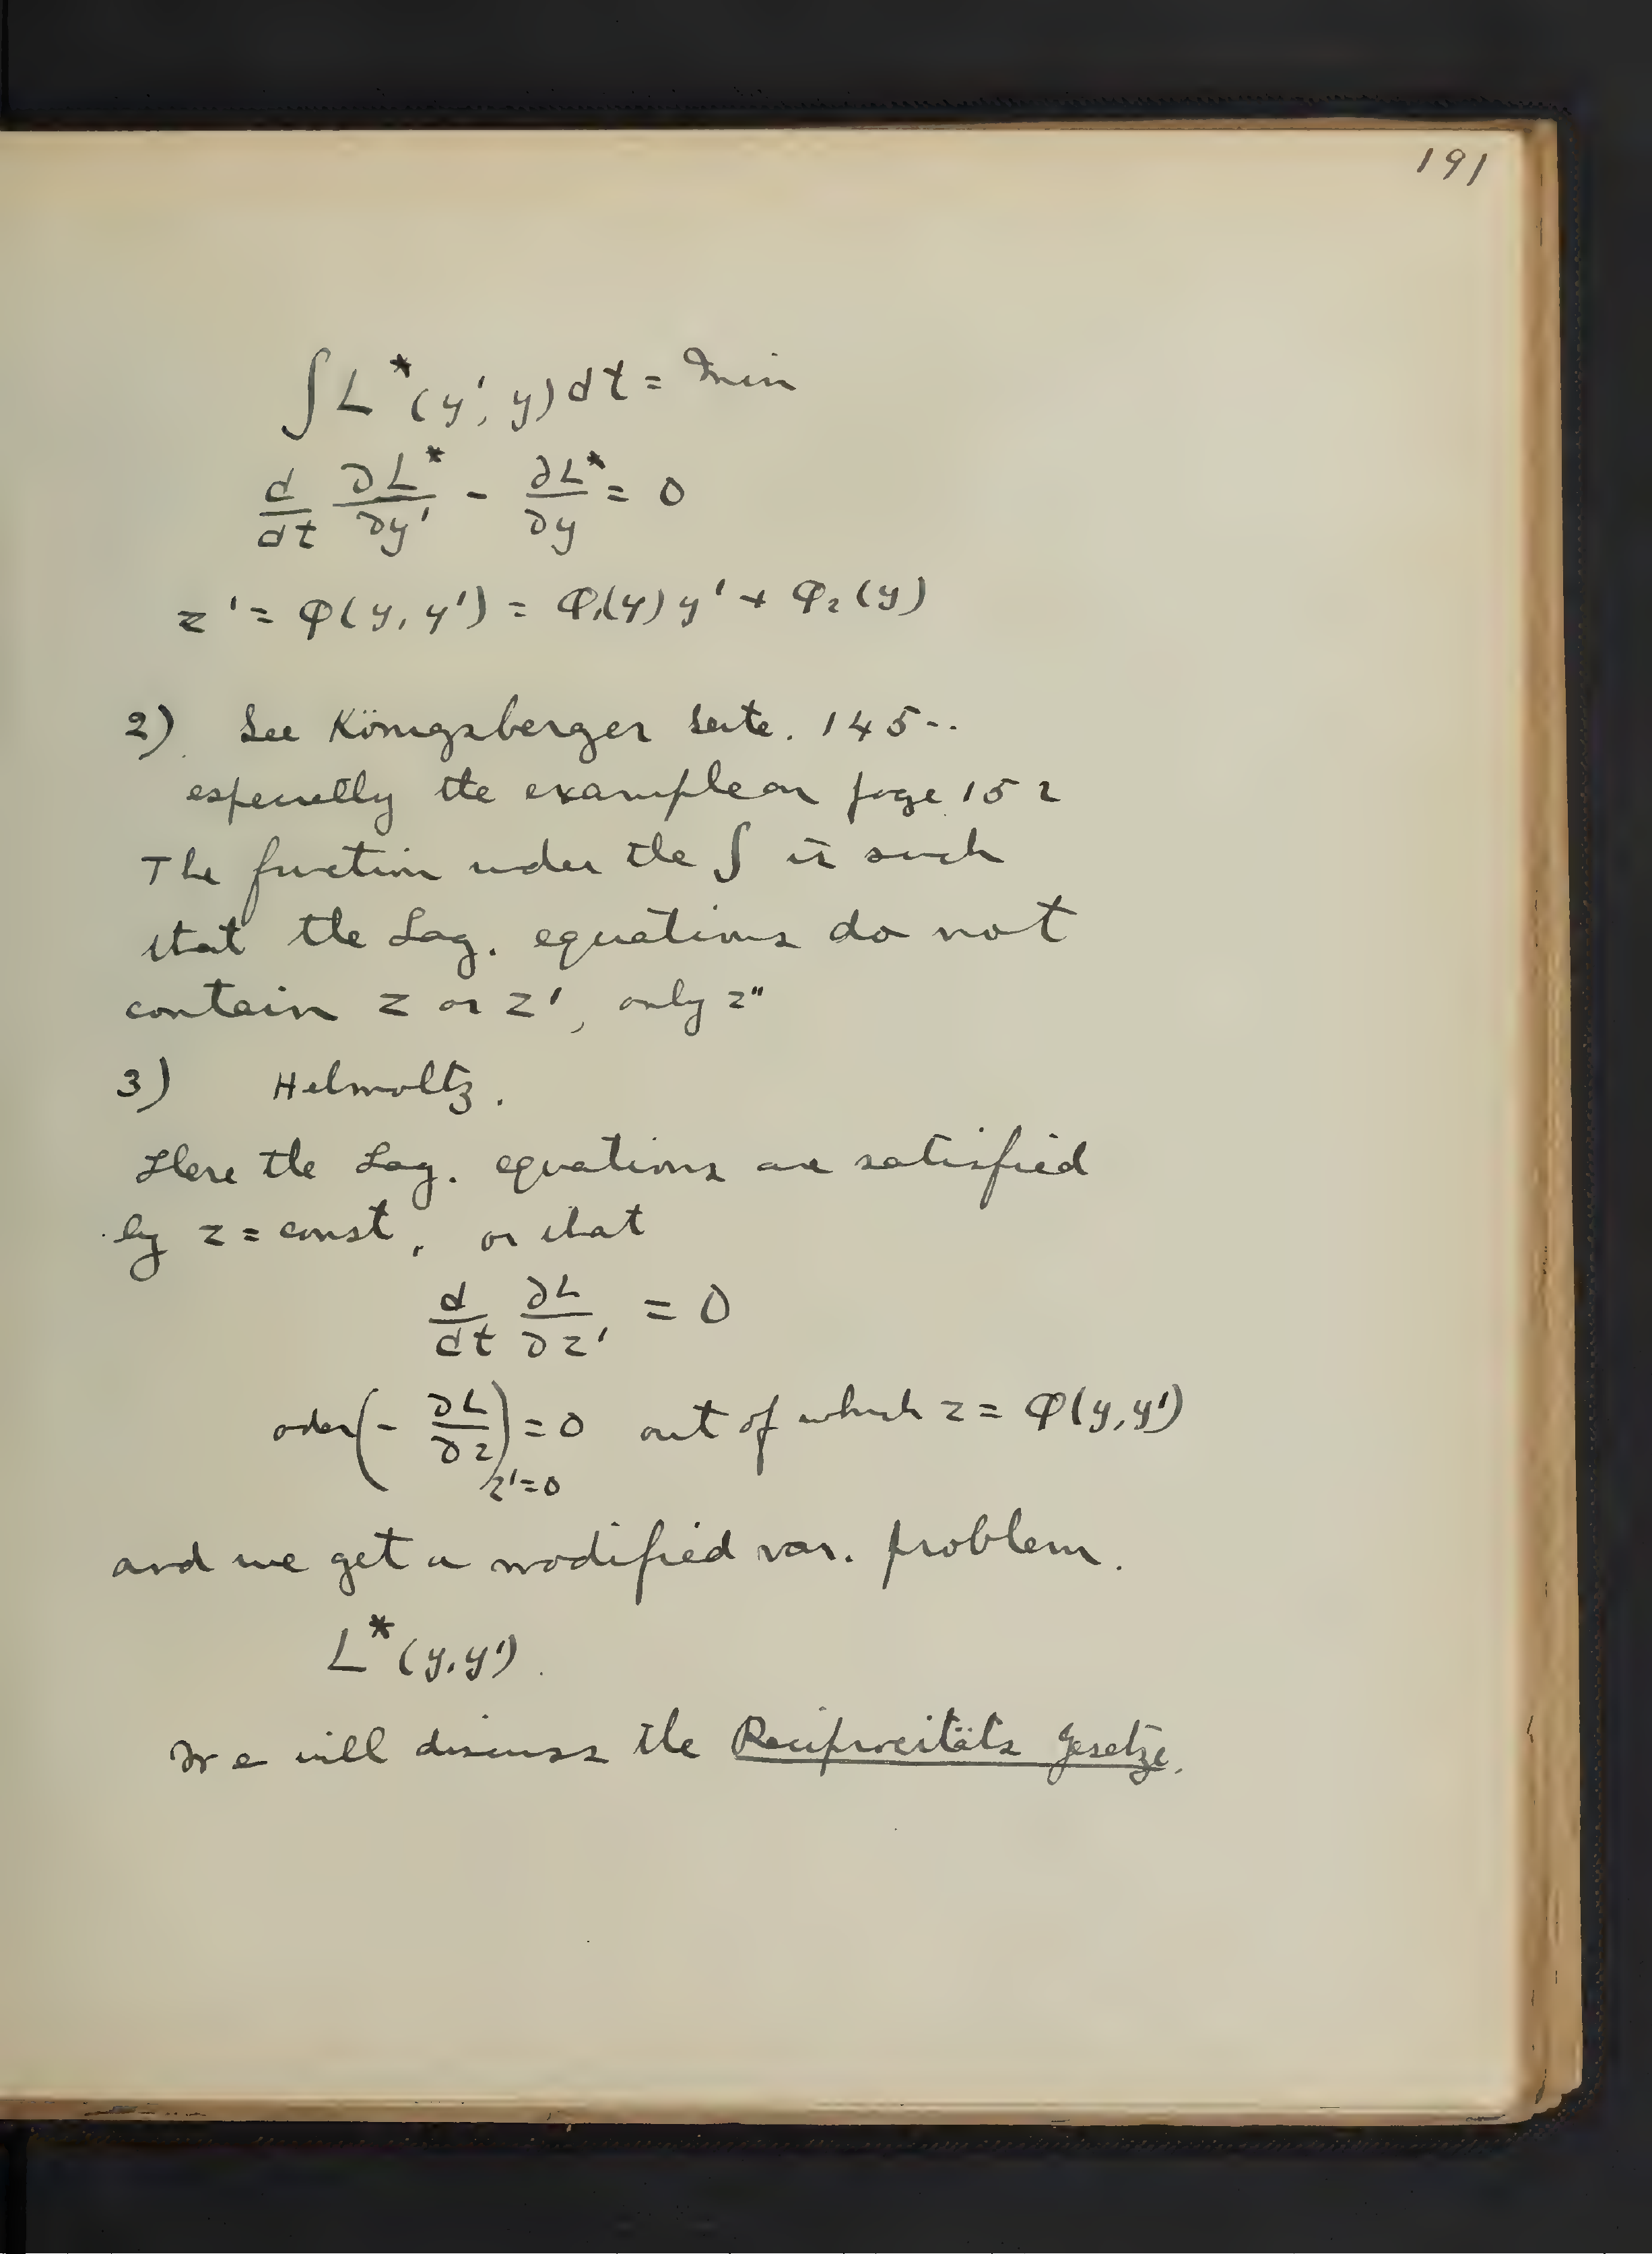 191
∫ L*(y', y) dt = Min
d/dt ∂L*/∂y' - ∂L*/∂y = 0
z' = φ(y, y') = φ₁(y) y' + φ₂(y)
2) See Königsberger Seite. 145--
especially the example on page 152
The function under the ∫ is such
that the Lag. equations do not
contain z or z', only z"
3) Helmoltz.
Here the Lag. equations are satisfied
by z = const, or that
d/dt ∂L/∂z' = 0
oder (- ∂L/∂z)_{z'=0} = 0 out of which z = φ(y, y')
and we get a modified var. problem.
L*(y, y').
We will discuss the Reciprocitäts gesetze.